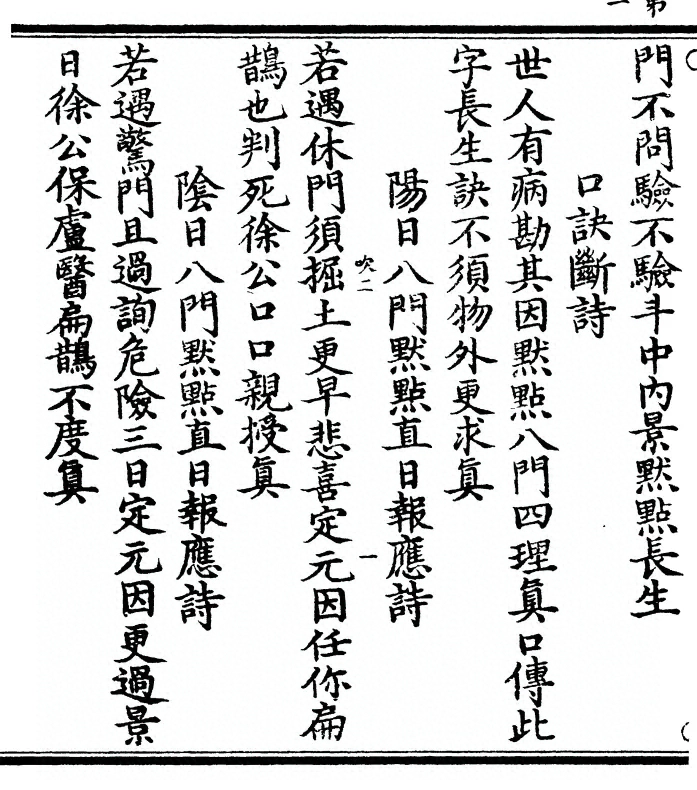 門不問驗不驗斗中內景黙點長生
口訣斷詩
世人有病勘其因黙點八門四理眞口傳此
字長生訣不須物外更求眞
陽日八門黙點直日報應詩
吹二
一
若遇休門須掘土更早悲喜定元因任你扁
鵲也判死徐公口口親授眞
陰日八門黙點直日報應詩
若遇驚門且過詢危險三日定元因更過景
日徐公保盧醫扁鵲不度眞